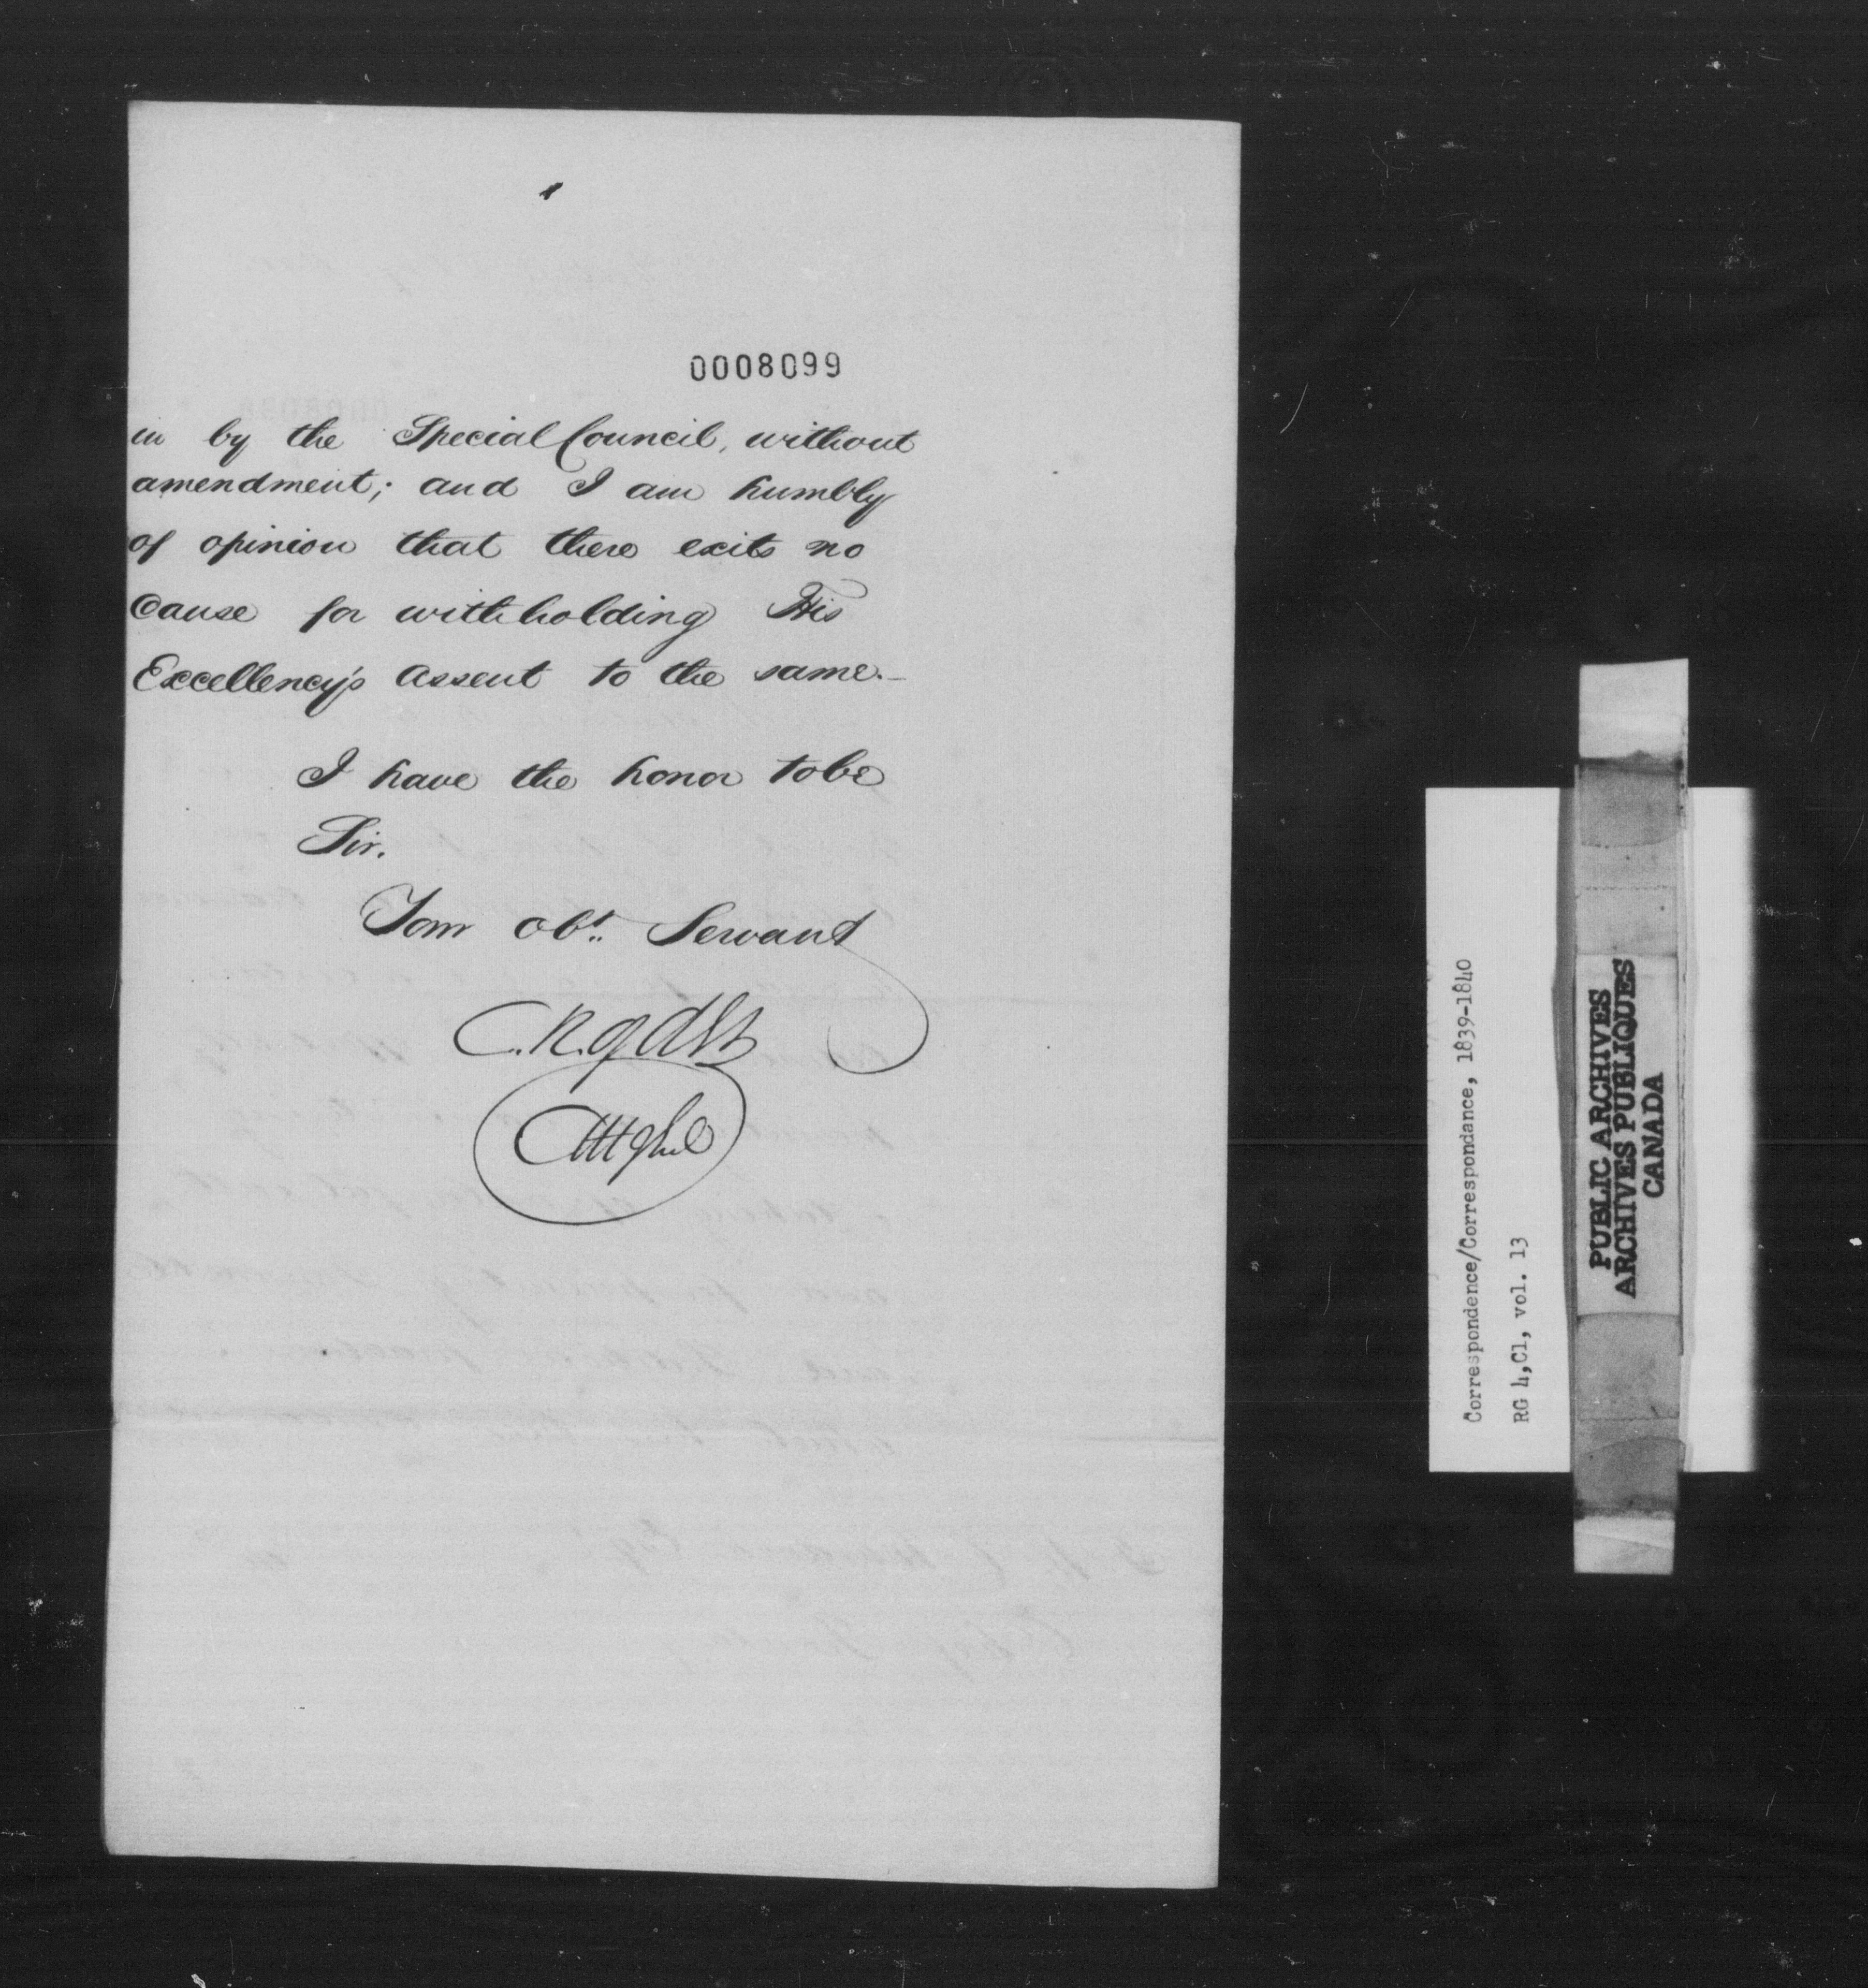 0008099
in by the Special Council, without
amendment; and I am humbly
of opinion that there exits no
Cause for withholding His
Excellency's assent to the same.—
I have the honor to be
Sir.
Your Obt. Servant
C. R. Ogden
Att Genl
Correspondence/Correspondance, 1839-1840
RG 4,C1, vol. 13
PUBLIC ARCHIVES
ARCHIVES PUBLIQUES
CANADA